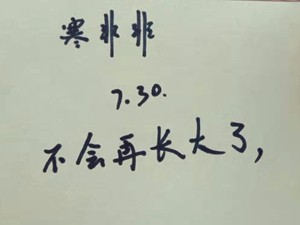 寒非非
7.30.
不会再长大了,